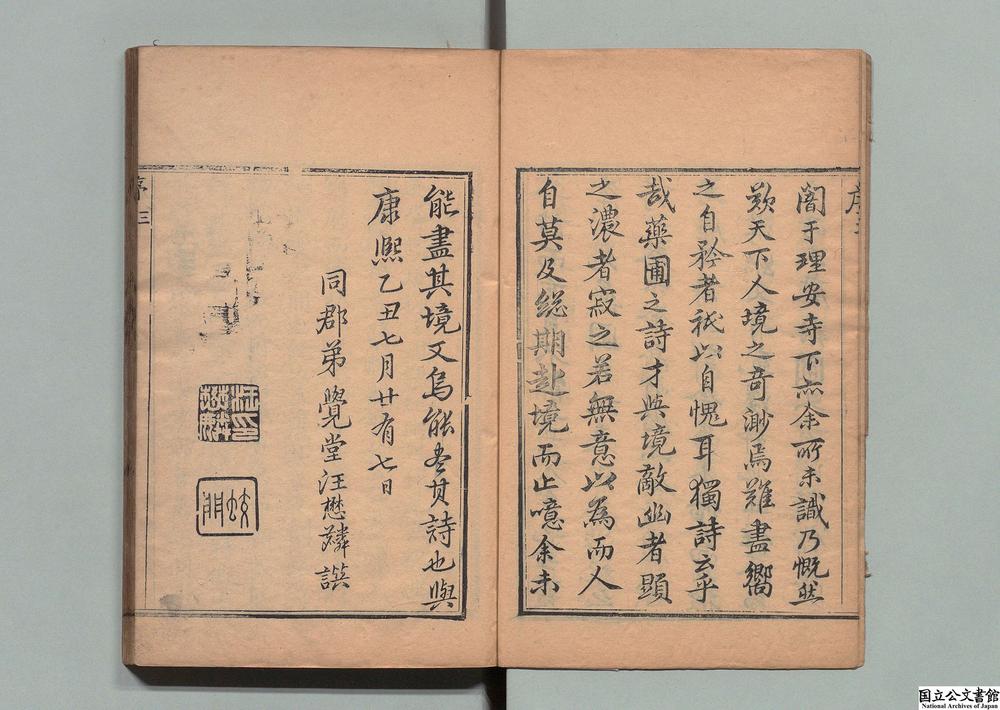 閣于理安寺下亦余所未識乃慨然
歎天下人境之奇渺焉難盡嚮
之自矜者祇以自愧耳獨詩云乎
哉藥圃之詩才與境敵幽者顯
之濃者寂之若無意以為而人
自莫及総期赴境而止噫余未
能盡其境又烏能尽其詩也與
康熙乙丑七月廿有七日
同郡弟覺堂汪懋麟譔
汪印懋麟
蛟門
序三
国立公文書館
National Archives of Japan